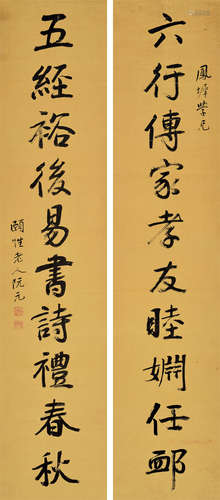 鳳墀學兄
六行傳家孝友睦婣任卹
五經裕後易書詩禮春秋
頤性老人阮元